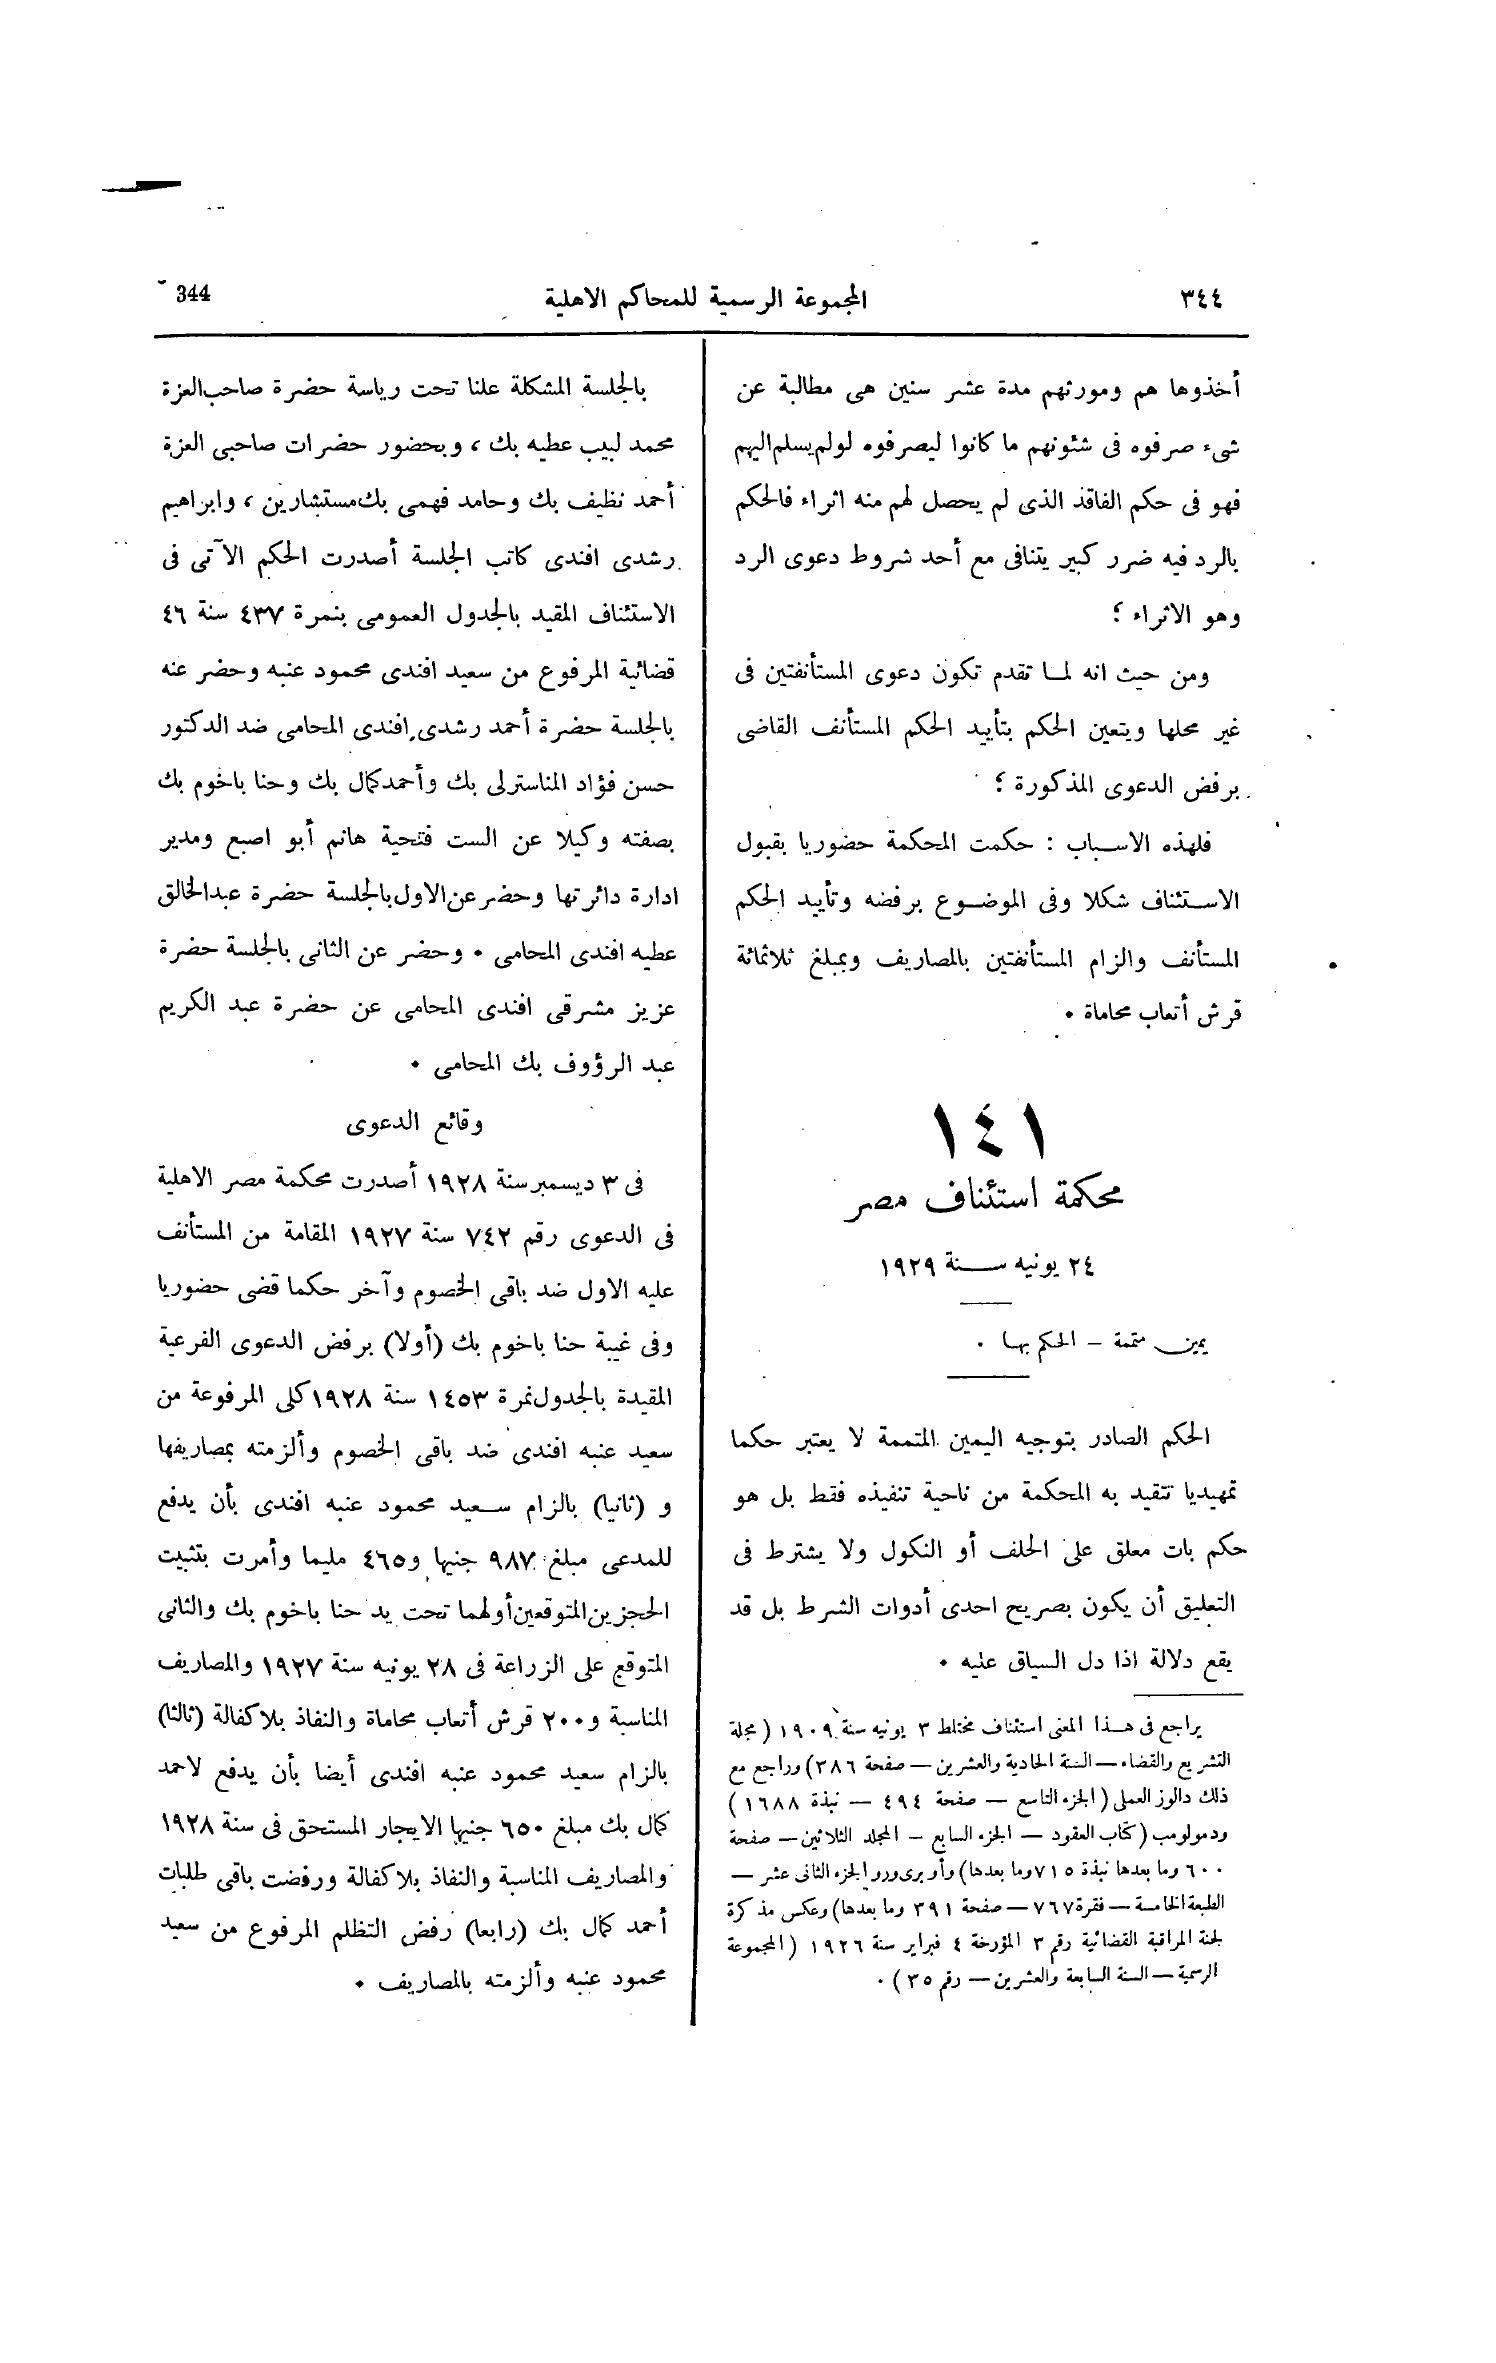 ٣٤٤
المجموعة الرسمية للمحاكم الاهلية
344
أخذوها هم ومورثهم مدة عشر سنين هى مطالبة عن
شىء صرفوه فى شئونهم ما كانوا ليصرفوه لولم يسلم اليهم
فهو فى حكم الفاقد الذى لم يحصل لهم منه اثراء فالحكم
بالرد فيه ضرر كبير يتنافى مع أحد شروط دعوى الرد
وهو الاثراء ؛
ومن حيث انه لما تقدم تكون دعوى المستأنفتين فى
غير محلها ويتعين الحكم بتأييد الحكم المستأنف القاضى
برفض الدعوى المذكورة ؛
فلهذه الاسباب : حكمت المحكمة حضوريا بقبول
الاستئناف شكلا وفى الموضوع برفضه وتأييد الحكم
المستأنف والزام المستأنفتين بالمصاريف وبمبلغ ثلاثمائة
قرش أتعاب محاماة .
١٤١
محكمة استئناف مصر
٢٤ يونيه سنة ١٩٢٩
يمين متممة – الحكم بها .
الحكم الصادر بتوجيه اليمين المتممة لا يعتبر حكما
تمهيديا تتقيد به المحكمة من ناحية تنفيذه فقط بل هو
حكم بات معلق على الحلف أو النكول ولا يشترط فى
التعليق أن يكون بصريح احدى أدوات الشرط بل قد
يقع دلالة اذا دل السياق عليه .
يراجع فى هذا المعنى استئناف مختلط ٣ يونيه سنة ١٩٠٩ (مجلة
التشريع والقضاء – السنة الحادية والعشرين – صفحة ٣٨٦) وراجع مع
ذلك دالوز العملى (الجزء التاسع – صفحة ٤٩٤ – نبذة ١٦٨٨)
ودمولومب (كتاب العقود – الجزء السابع – المجلد الثلاثين – صفحة
٦٠٠ وما بعدها نبذة ٧١٥ وما بعدها) وأوبرى ورو الجزء الثانى عشر –
الطبعة الخامسة – فقرة ٧٦٧ – صفحة ٣٩١ وما بعدها) وعكس مذكرة
لجنة المراقبة القضائية رقم ٣ المؤرخة ٤ فبراير سنة ١٩٢٦ (المجموعة
الرسمية – السنة السابعة والعشرين – رقم ٣٥) .
بالجلسة المشكلة علنا تحت رياسة حضرة صاحب العزة
محمد لبيب عطيه بك ، وبحضور حضرات صاحبى العزة
أحمد نظيف بك وحامد فهمى بك مستشارين ، وابراهيم
رشدى افندى كاتب الجلسة أصدرت الحكم الآتى فى
الاستئناف المقيد بالجدول العمومى بنمرة ٤٣٧ سنة ٤٦
قضائية المرفوع من سعيد افندى محمود عنبه وحضر عنه
بالجلسة حضرة أحمد رشدى افندى المحامى ضد الدكتور
حسن فؤاد المناسترلى بك وأحمد كمال بك وحنا باخوم بك
بصفته وكيلا عن الست فتحية هانم أبو اصبع ومدير
ادارة دائرتها وحضر عن الاول بالجلسة حضرة عبد الخالق
عطيه افندى المحامى . وحضر عن الثانى بالجلسة حضرة
عزيز مشرقى افندى المحامى عن حضرة عبد الكريم
عبد الرؤوف بك المحامى .
وقائع الدعوى
فى ٣ ديسمبر سنة ١٩٢٨ أصدرت محكمة مصر الاهلية
فى الدعوى رقم ٧٤٢ سنة ١٩٢٧ المقامة من المستأنف
عليه الاول ضد باقى الخصوم وآخر حكما قضى حضوريا
وفى غيبة حنا باخوم بك (أولا) برفض الدعوى الفرعية
المقيدة بالجدول نمرة ١٤٥٣ سنة ١٩٢٨ كلى المرفوعة من
سعيد عنبه افندى ضد باقى الخصوم وألزمته بمصاريفها
و (ثانيا) بالزام سعيد محمود عنبه افندى بأن يدفع
للمدعى مبلغ ٩٨٧ جنيها و٤٦٥ مليما وأمرت بتثبيت
الحجزين المتوقعين أولهما تحت يد حنا باخوم بك والثانى
المتوقع على الزراعة فى ٢٨ يونيه سنة ١٩٢٧ والمصاريف
المناسبة و٢٠٠ قرش أتعاب محاماة والنفاذ بلا كفالة (ثالثا)
بالزام سعيد محمود عنبه افندى أيضا بأن يدفع لاحمد
كمال بك مبلغ ٦٥٠ جنيها الايجار المستحق فى سنة ١٩٢٨
والمصاريف المناسبة والنفاذ بلا كفالة ورفضت باقى طلبات
أحمد كمال بك (رابعا) رفض التظلم المرفوع من سعيد
محمود عنبه وألزمته بالمصاريف .